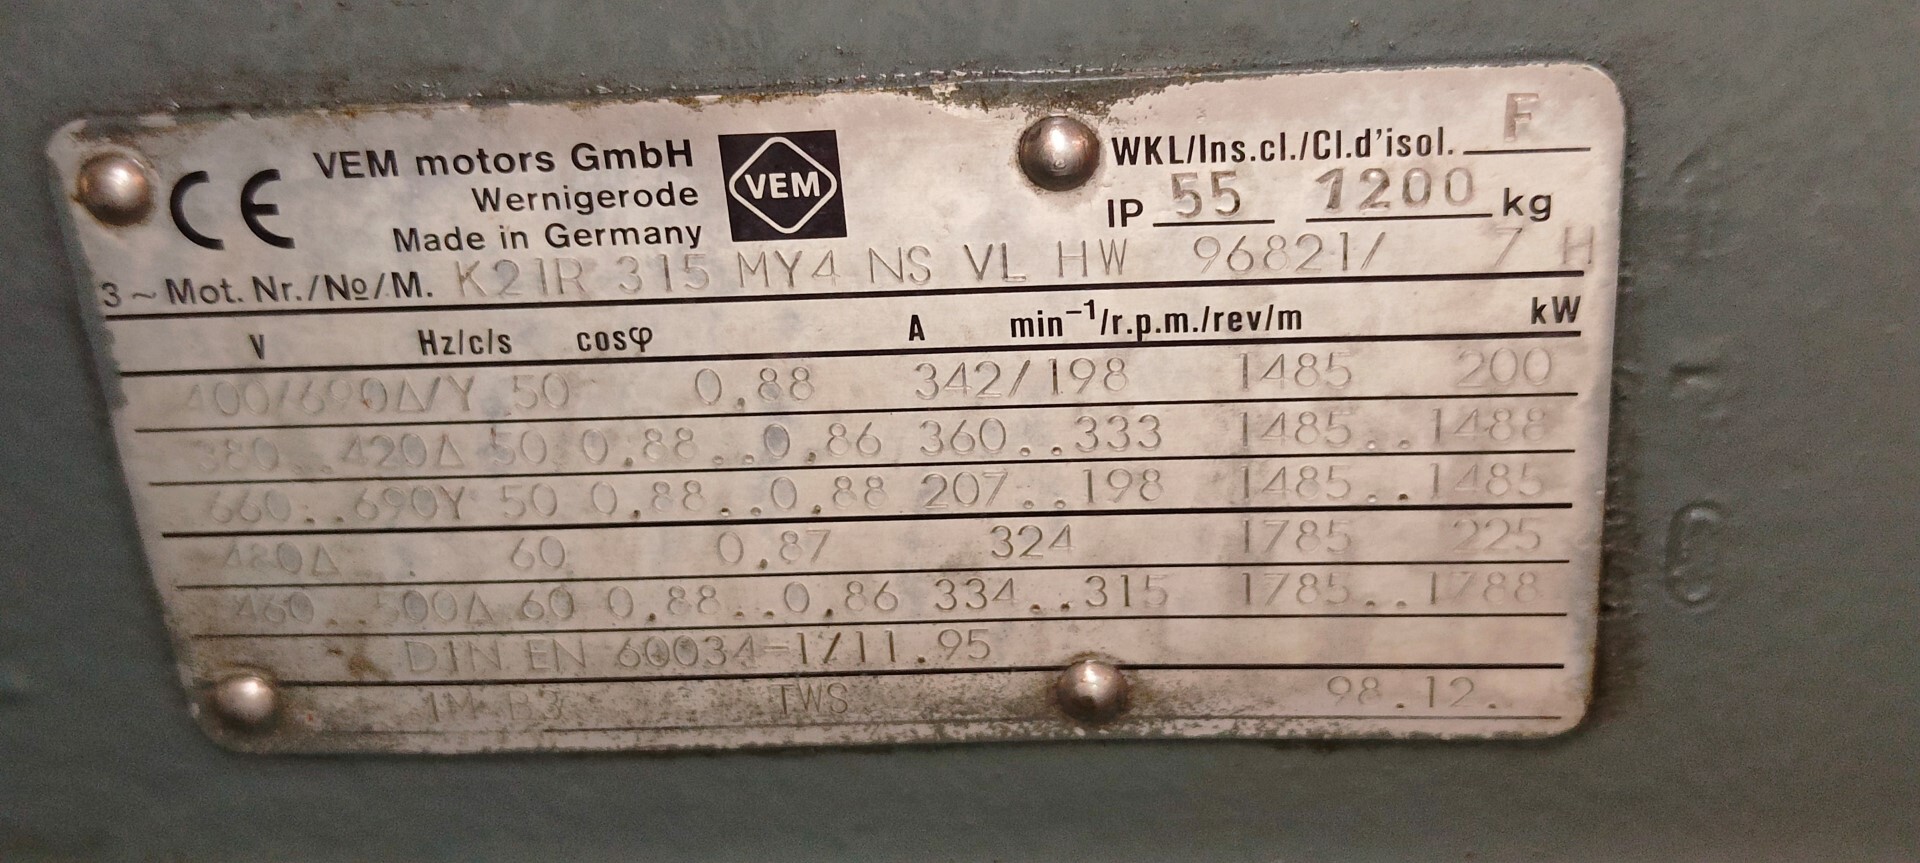 CE VEM motors GmbH VEM WKL/Ins.cl./Cl.d'isol. F
Wernigerode IP 55 1200 kg
Made in Germany
3~Mot. Nr./№/M. K21R 315 MY4 NS VL HW 96821/ 7 H
V Hz/c/s cosφ A min⁻¹/r.p.m./rev/m kW
400/690Δ/Y 50 0,88 342/198 1485 200
380..420Δ 50 0,88..0,86 360..333 1485..1488
660..690Y 50 0,88..0,88 207..198 1485..1485
480Δ 60 0,87 324 1785 225
460..500Δ 60 0,88..0,86 334..315 1785..1788
DIN EN 60034-1/11.95
IM B3 TWS 98.12.